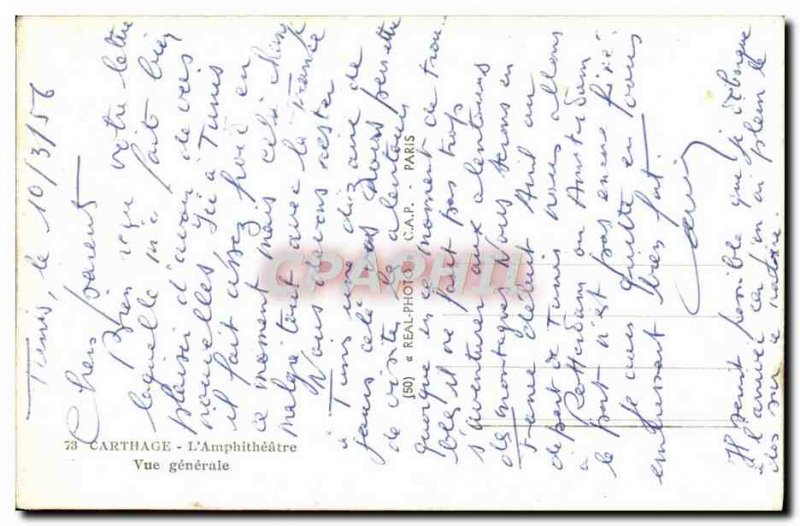 Tunis, le 10/3/56
Chers parents
Bien reçu votre lettre
laquelle m'a fait bien
plaisir d'avoir de vos
nouvelles. Ici à Tunis
il fait assez froid en
ce moment mais cela change
malgré tout avec la France
Nous devons rester
à Tunis une dizaine de
jours cela va nous permettre
de visiter les alentours
quoique en ce moment de trou-
bles il ne fait pas trop
s'aventurer aux alentours
des montagnes. Nous serons en
France début Avril au
départ de Tunis nous allons
à Rotterdam ou Amsterdam
le port n'est pas encore fixé.
Je vous quitte en vous
embrassant bien fort.
Il serait possible que je débarque
à l'arrivée car j'en ai plein le
dos sur ce
73 CARTHAGE - L'Amphithéâtre
Vue générale
(50) « REAL-PHOTO » C.A.P. - PARIS
CPARHIL